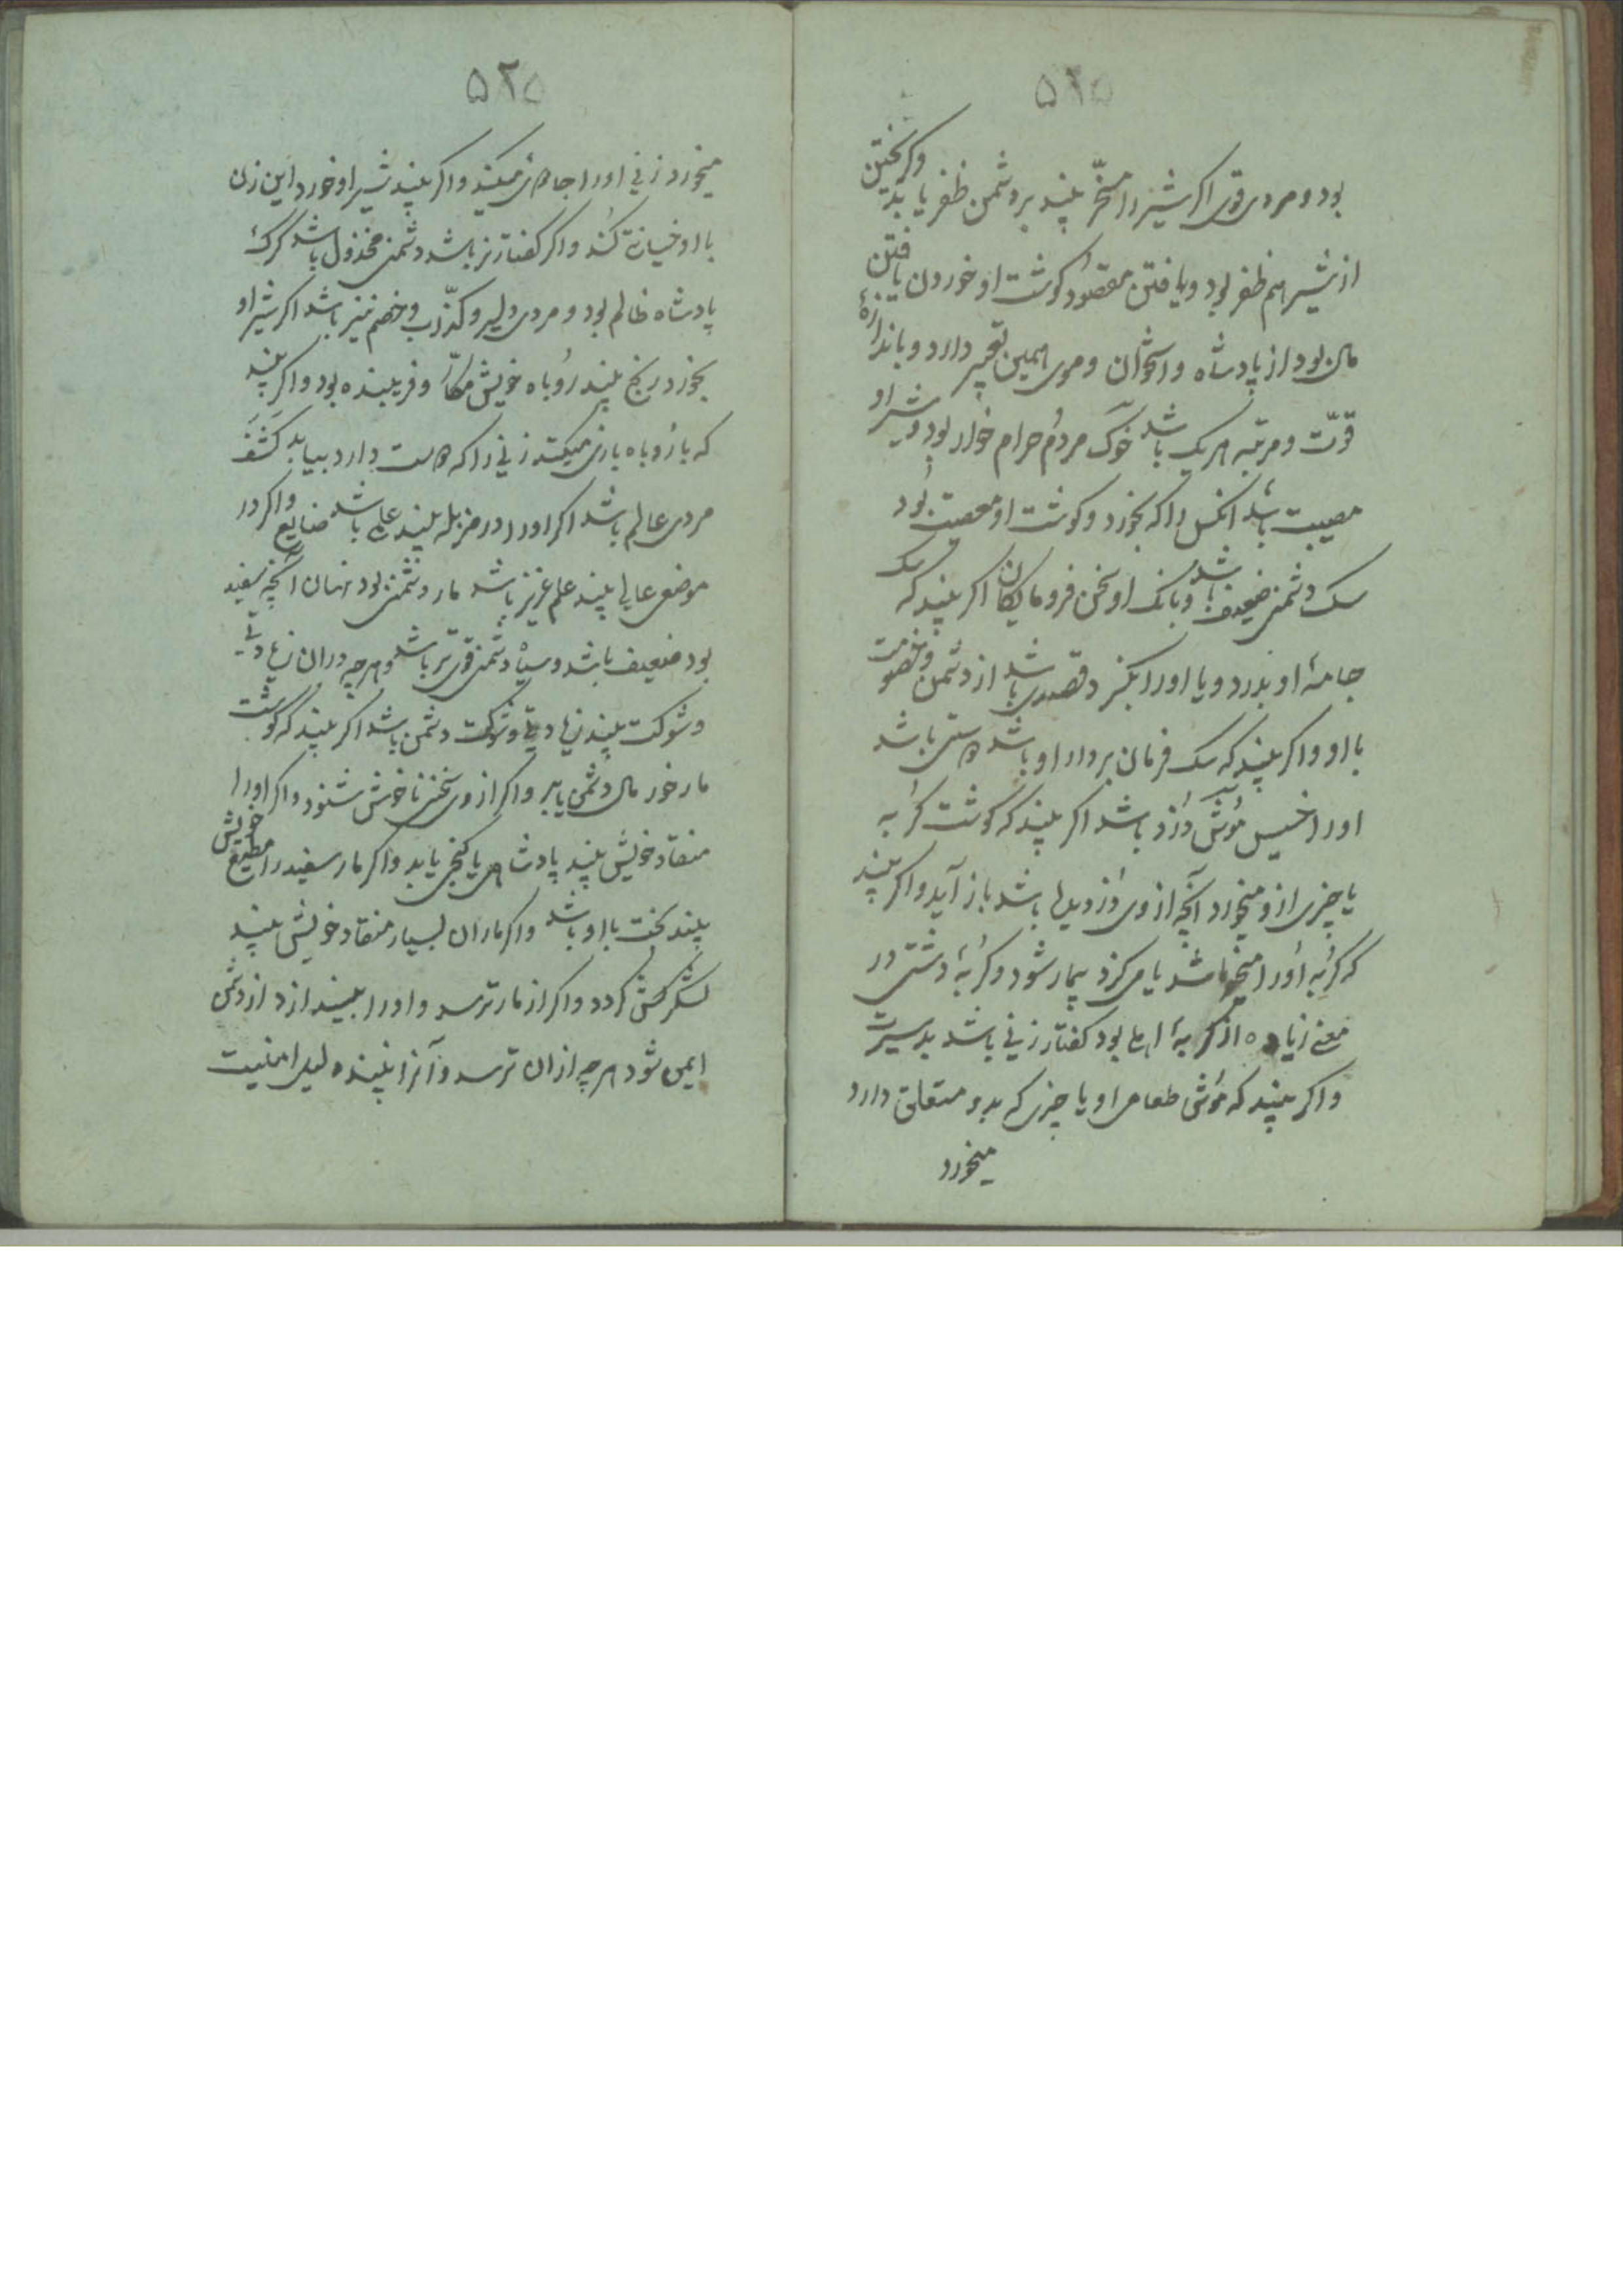 ۵۲۵
بود و مردی قوی اکر شیر را مسخّر بیند بر دشمن ظفر یابد و کریختن
از شیر هم ظفر بود و یافتن مقصود کوشت او خوردن یافتن
مال بود از پادشاه و استخوان و موی همین تعبیر دارد و باندازهٔ
قوّت و مرتبه هریک باشد خوک مردم حرام خوار بود و شیر او
مصیبت باشد انکس را که بخورد و کوشت او معصیت بود
سک دشمنی ضعیف باشد و بانک او سخن فرومایکان اکر بیند که سک
جامهٔ او بدرد و یا اورا بکزد قصدی باشد از دشمن و خصومت
با او واکر بیند که سک فرمان بردار او باشد دوستی باشد
اورا خسیس موش دزد باشد اکر بیند که کوشت کربه
یا چیزی ازو میخورد آنچه از وی دزدیده باشد باز آید واکر بیند
که کربه اورا میخراشد یا می کزد بیمار شود و کربهٔ دشتی در
معنی زیاده از کربهٔ اهلی بود کفتار زنی باشد بد سیرت
واکر بیند که موش طعام او یا چیزی که بدو متعلق دارد
میخورد
۵۲۵
میخورد زنی اورا جادوئی میکند واکر بیند شیر او خورد این زن
با او خیانت کند واکر کفتار نر باشد دشمنی مخذول باشد کرک
پادشاه ظالم بود و مردی دلیر و کذّاب و خصم نیز باشد اکر شیر او
بخورد رنج بیند روباه خویش مکّار و فریبنده بود واکر بیند
که با روباه بازی میکند زنی را که دوست دارد بیابد کشف
مردی عالم باشد اکر اورا در مزبله بیند علمی باشد ضایع واکر در
موضع عالی بیند علم عزیز باشد مار دشمنی بود نهان آنچه سفید
بود ضعیف باشد و سیاه دشمنی قوی تر باشد و هرچه در ان زیادتی
و شوکت بیند زیادتی و شوکت دشمن باشد اکر بیند که کوشت
مار خورد مال دشمن یابد واکر از وی سخنی ناخوش شنود واکر اورا
منقاد خویش بیند پادشاهی یا کنجی یابد واکر مار سفید را مطیع خویش
بیند بخت با او باشد واکر ماران بسیار منقاد خویش بیند
لشکر کش کردد واکر از مار ترسد و اورا نبیند از دشمن
ایمن شود هرچه از ان ترسد و آنرا نبیند دلیل امنیت